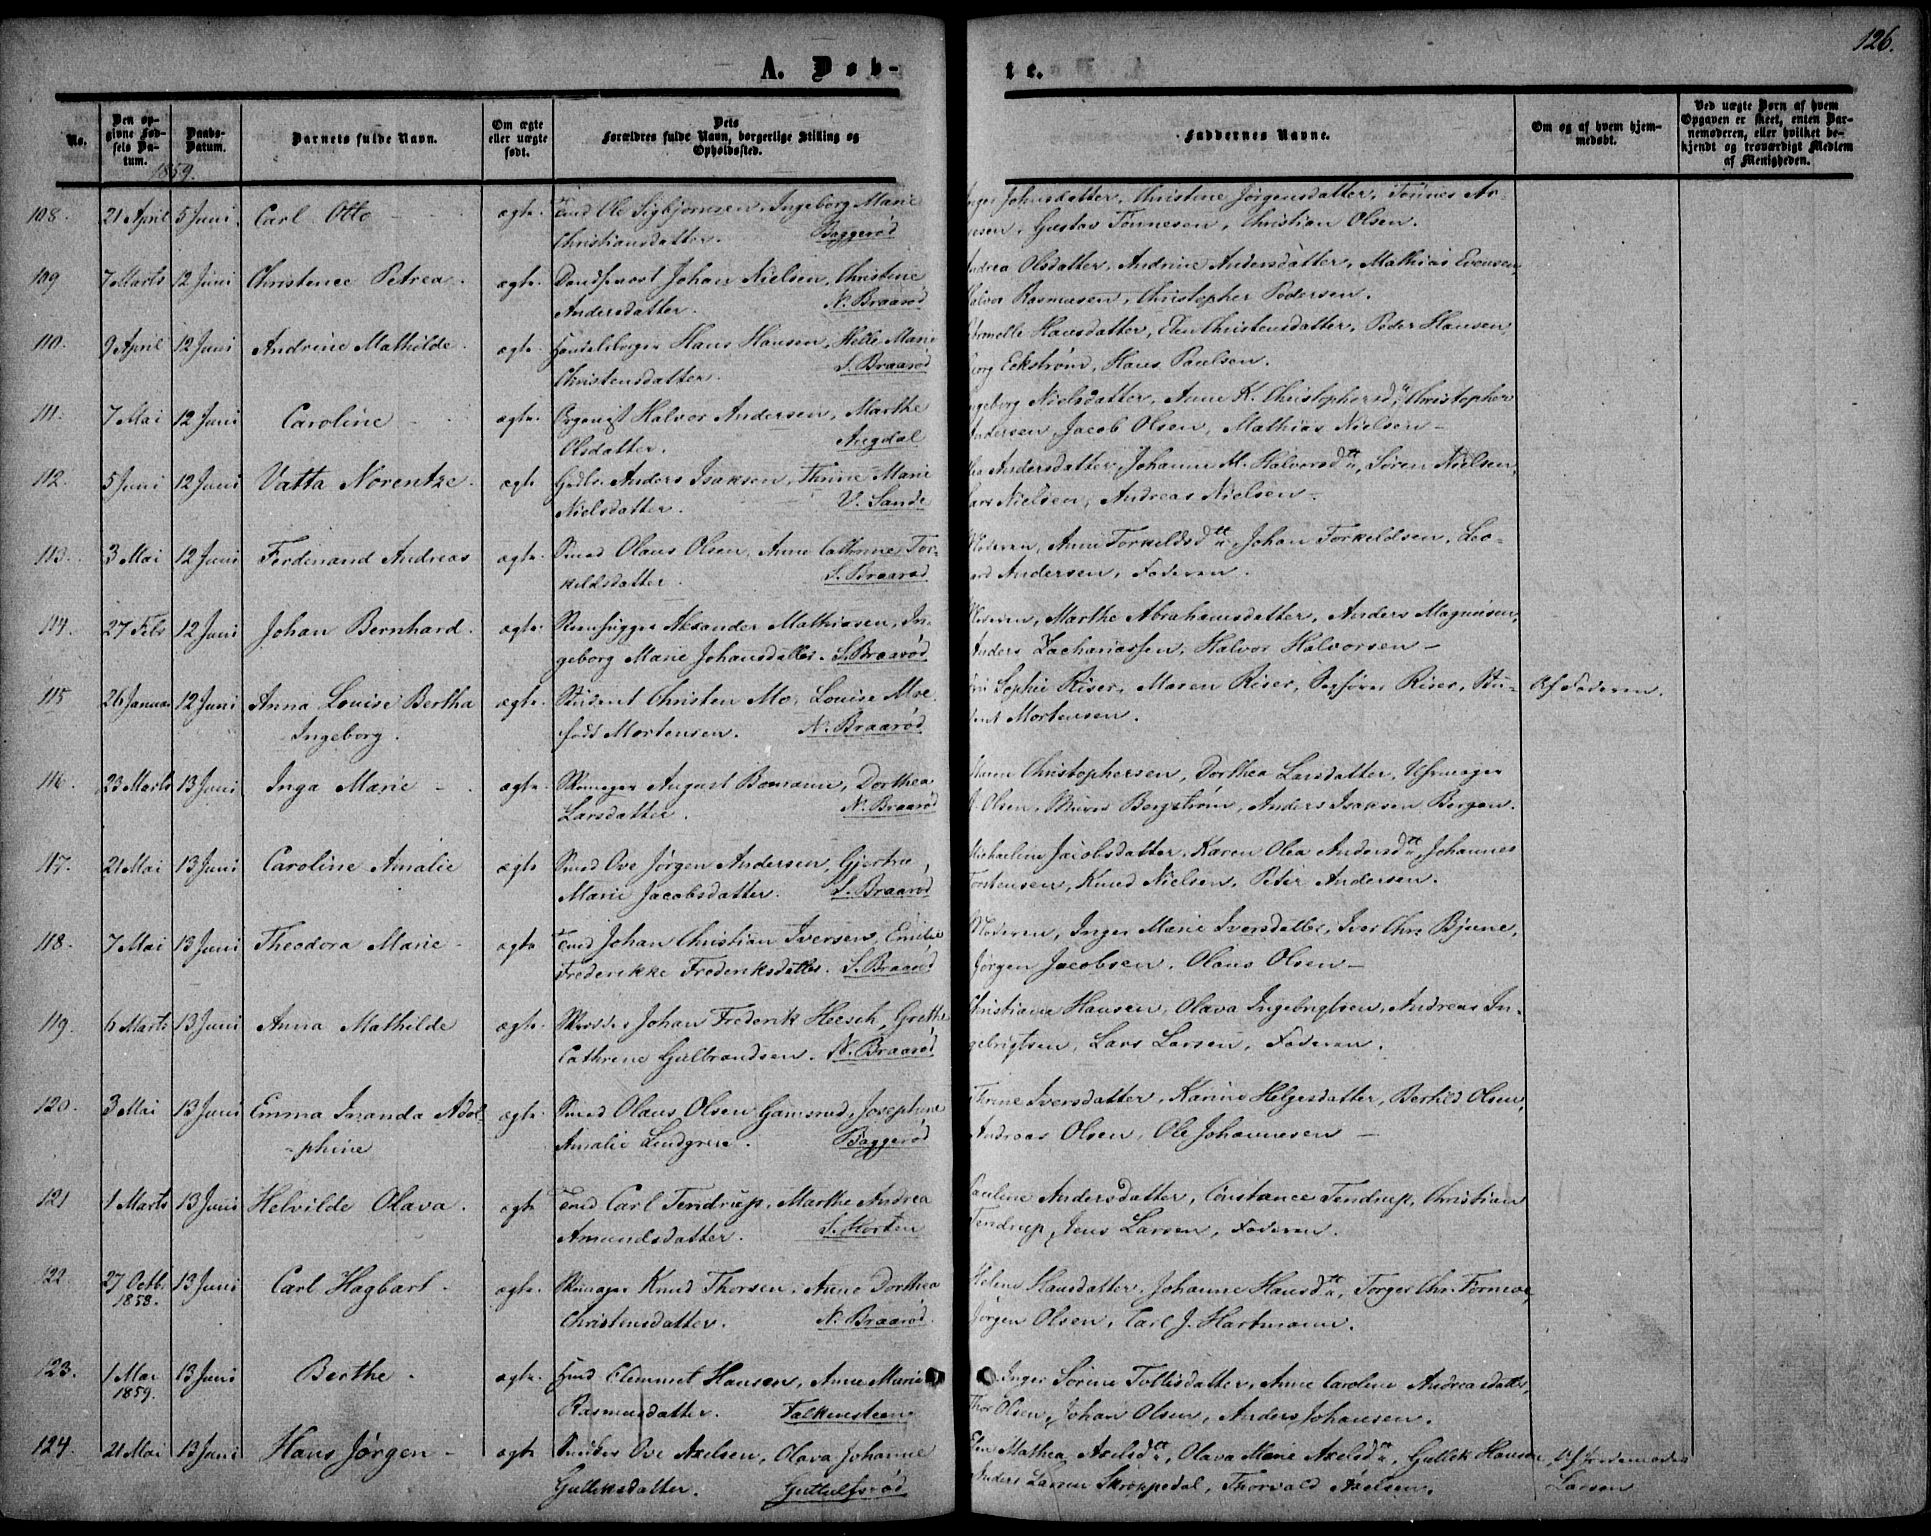 126.
A. Døb-
te.
No.
Den op-
givne Fød-
sels Da-
tum.
Daabs-
Datum.
Barnets fulde Navn.
Om ægte
eller uægte
født.
Dets
Forældres fulde Navn, borgerlige Stilling og
Opholdssted.
Faddernes Navne.
Om og af hvem hjem-
medøbt.
Ved uægte Børn af hvem
Opgaven er skeet, enten Bar-
nemoderen, eller hvilket be-
kjendt og troværdigt Medlem
af Menigheden.
1859.
108. 21 April 5 Juni. Carl Otto ægte. Tømd Ole Sigbjørnsen, Ingeborg Marie
Christiansdatter. Baggerød
Johnsdatter, Christine Jørgensdatter, Tønnes
Gustav Tønnesen, Christian Olsen.
109 7 Marts 12 Juni Christence Petrea. ægte. Johan Nielsen, Christine
Andersdatter. N. Braarød
Olsdatter, Andrine Andersdatter, Mathias Evensen,
Halvor Rasmussen, Christopher Pedersen.
110. 9 April 12 Juni Andrine Mathilde. ægte. Handelsborger Hans Hansen, Helle Marie
Christensdatter. S. Braarød
Hansdatter, Elen Christensdatter, Peder Hansen
Eckstrøm, Hans Paulsen.
111. 7 Mai 12 Juni Caroline ægte. Organist Halvor Andersen, Marthe
Olsdatter. Augdal
Ingeborg Nielsdatter, Anne K. Christophersd., Christopher
Andersen, Jacob Olsen, Mathias Nielsen
112. 5 Juni 12 Juni Vatta Norentze. ægte Anders Isaksen, Thrine Marie
Nielsdatter. V. Sande
Andersdatter, Johanne M. Halvorsdtt., Søren Nielsen,
Lars Nielsen, Andreas Nielsen.
113. 3 Mai 12 Juni Ferdinand Andreas ægte. Smed Olaus Olsen, Anne Cathrine Tor-
keldsdatter. S. Braarød
Moderen, Anne Torkeldsdtt., Johan Torkeldsen, Leo-
Andersen, Faderen.
114. 27 Feb 12 Juni Johan Bernhard. ægte. Steenhugger Mathiasen, In-
geborg Marie Johansdatter. S. Braarød
Moderen, Marthe Abrahamsdatter, Anders Magnusen,
Anders Zachariassen, Halvor Halvorsen
115 26 Januar 12 Juni Anna Louise Bertha ægte. Student Christen Mo, Louise Moe
Ingeborg. født Mortensen. N. Braarød
Sophie Riser, Maren Riser, Riser, Stu-
dent Mortensen.
Af Faderen.
116. 23 Marts 13 Juni Inga Marie ægte. Skomager August Bomann, Dorthea
Larsdatter. N. Braarød
Christophersen, Dorthea Larsdatter, Uhrmager
Olsen, Murer Bergstrøm, Anders Isaksen Bergan.
117. 21 Mai 13 Juni Caroline Amalie ægte Smed Ove Jørgen Andersen, Gjertine
Marie Jacobsdatter. S. Braarød
Jacobsdatter, Karen Olea Andersdtt., Johannes
Torstensen, Knud Nielsen, Peter Andersen.
118. 7 Mai 13 Juni Theodora Marie ægte Tømd Johan Christian Iversen, Emilie
Frederikke Frederiksdatter. S. Braarød
Moderen, Inger Marie Iversdatter, Iver Chr. Bjune,
Jørgen Jacobsen, Olaus Olsen
119. 6 Marts 13 Juni Anna Mathilde ægte. Skræder Johan Frederik Heesch, Grethe
Cathrine Gulbrandsen. N. Braarød
Christiane Hansen, Olava Ingebrigtsen, Andreas In-
gebrigtsen, Lars Larsen, Faderen.
120. 3 Mai 13 Juni Emma Imanda Adol ægte. Smed Olaus Olsen Gamsrud, Josephine
-phine Amalie Lindgren. Baggerød
Thrine Iversdatter, Karine Helgesdatter, Berthel Olsen,
Andreas Olsen, Ole Johannesen
121 1 Marts 13 Juni Helvilde Olava. ægte Tømd Carl Tendrup, Marthe Andrea
Amundsdatter. S. Horten
Pauline Andersdatter, Constance Tendrup, Christian
Tendrup, Jens Larsen, Faderen.
122. 27 Octb. 1858. 13 Juni Carl Hagbart. ægte. Skomager Knud Thorsen, Anne Dorthea
Christensdatter. N. Braarød.
Helene Hansdatter, Johanne Hansdtt., Torger Chr. Fornæve,
Jørgen Olsen, Carl J. Hartmann.
123. 1 Mar 1859. 13 Juni Berthe. ægte. Clemmet Hansen, Anne Marie
Rasmusdatter. Falkensteen
Inger Sørine Tollisdatter, Anne Caroline Andreasdatter,
Thor Olsen, Johan Olsen, Anders Johansen.
124. 21 Mai 13 Juni Hans Jørgen ægte Snedker Ove Axelsen, Olava Johanne
Gulliksdatter. Guttulfsrød
Elen Mathea Axelsdtt., Olava Marie Axelsdtt., Gullik Hansen
Anders Larsen Skroppedal, Thorvald Axelsen.
Af
Larsen